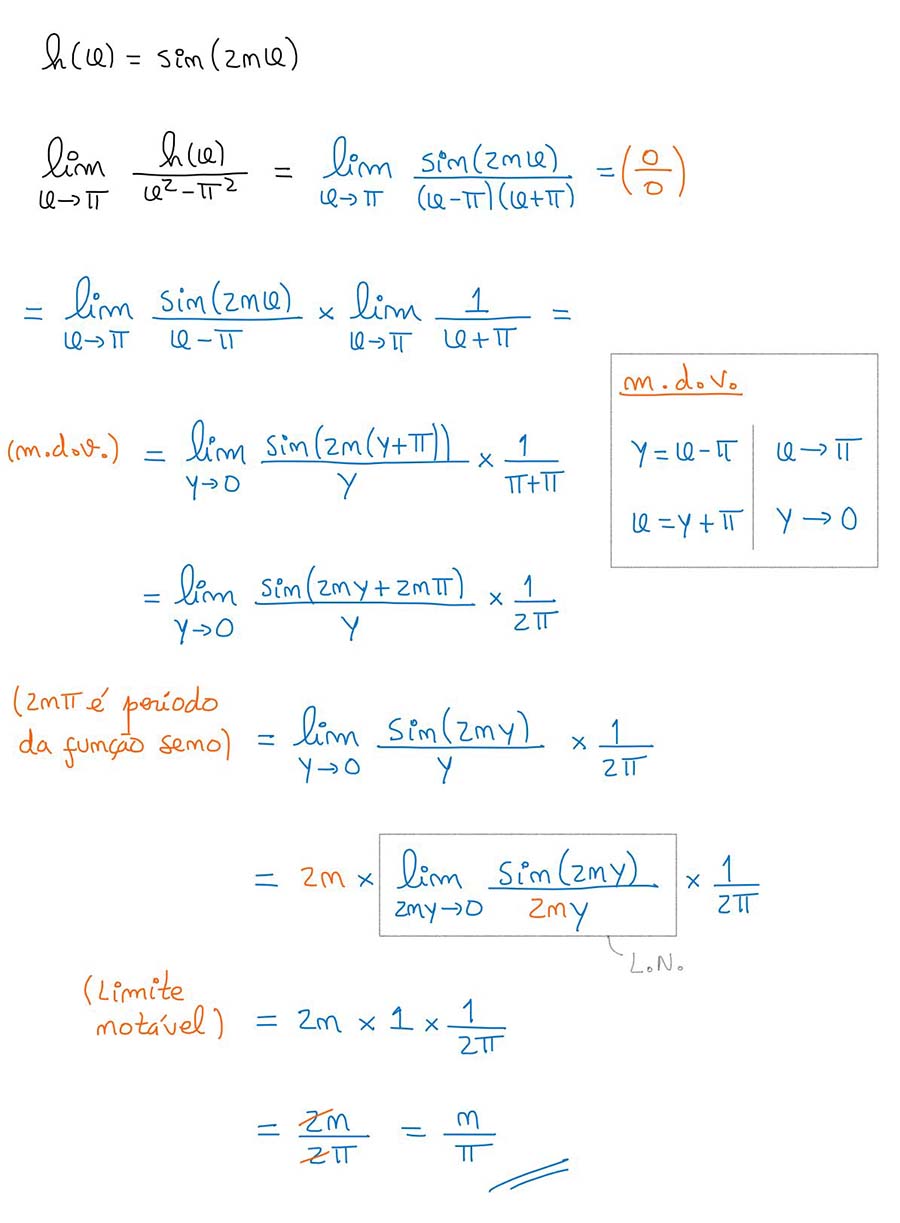 h(x) = sin(2nx)
lim x→π h(x)/(x² - π²) = lim x→π sin(2nx)/((x-π)(x+π)) = (0/0)
= lim x→π sin(2nx)/(x-π) × lim x→π 1/(x+π) =
m.d.v.
y = x-π | x→π
x = y+π | y→0
(m.d.v.) = lim y→0 sin(2n(y+π))/y × 1/(π+π)
= lim y→0 sin(2ny+2nπ)/y × 1/2π
(2nπ é período
da função seno) = lim y→0 sin(2ny)/y × 1/2π
= 2n × lim 2ny→0 sin(2ny)/2ny × 1/2π
L.N.
(Limite
notável) = 2n × 1 × 1/2π
= 2n/2π = n/π